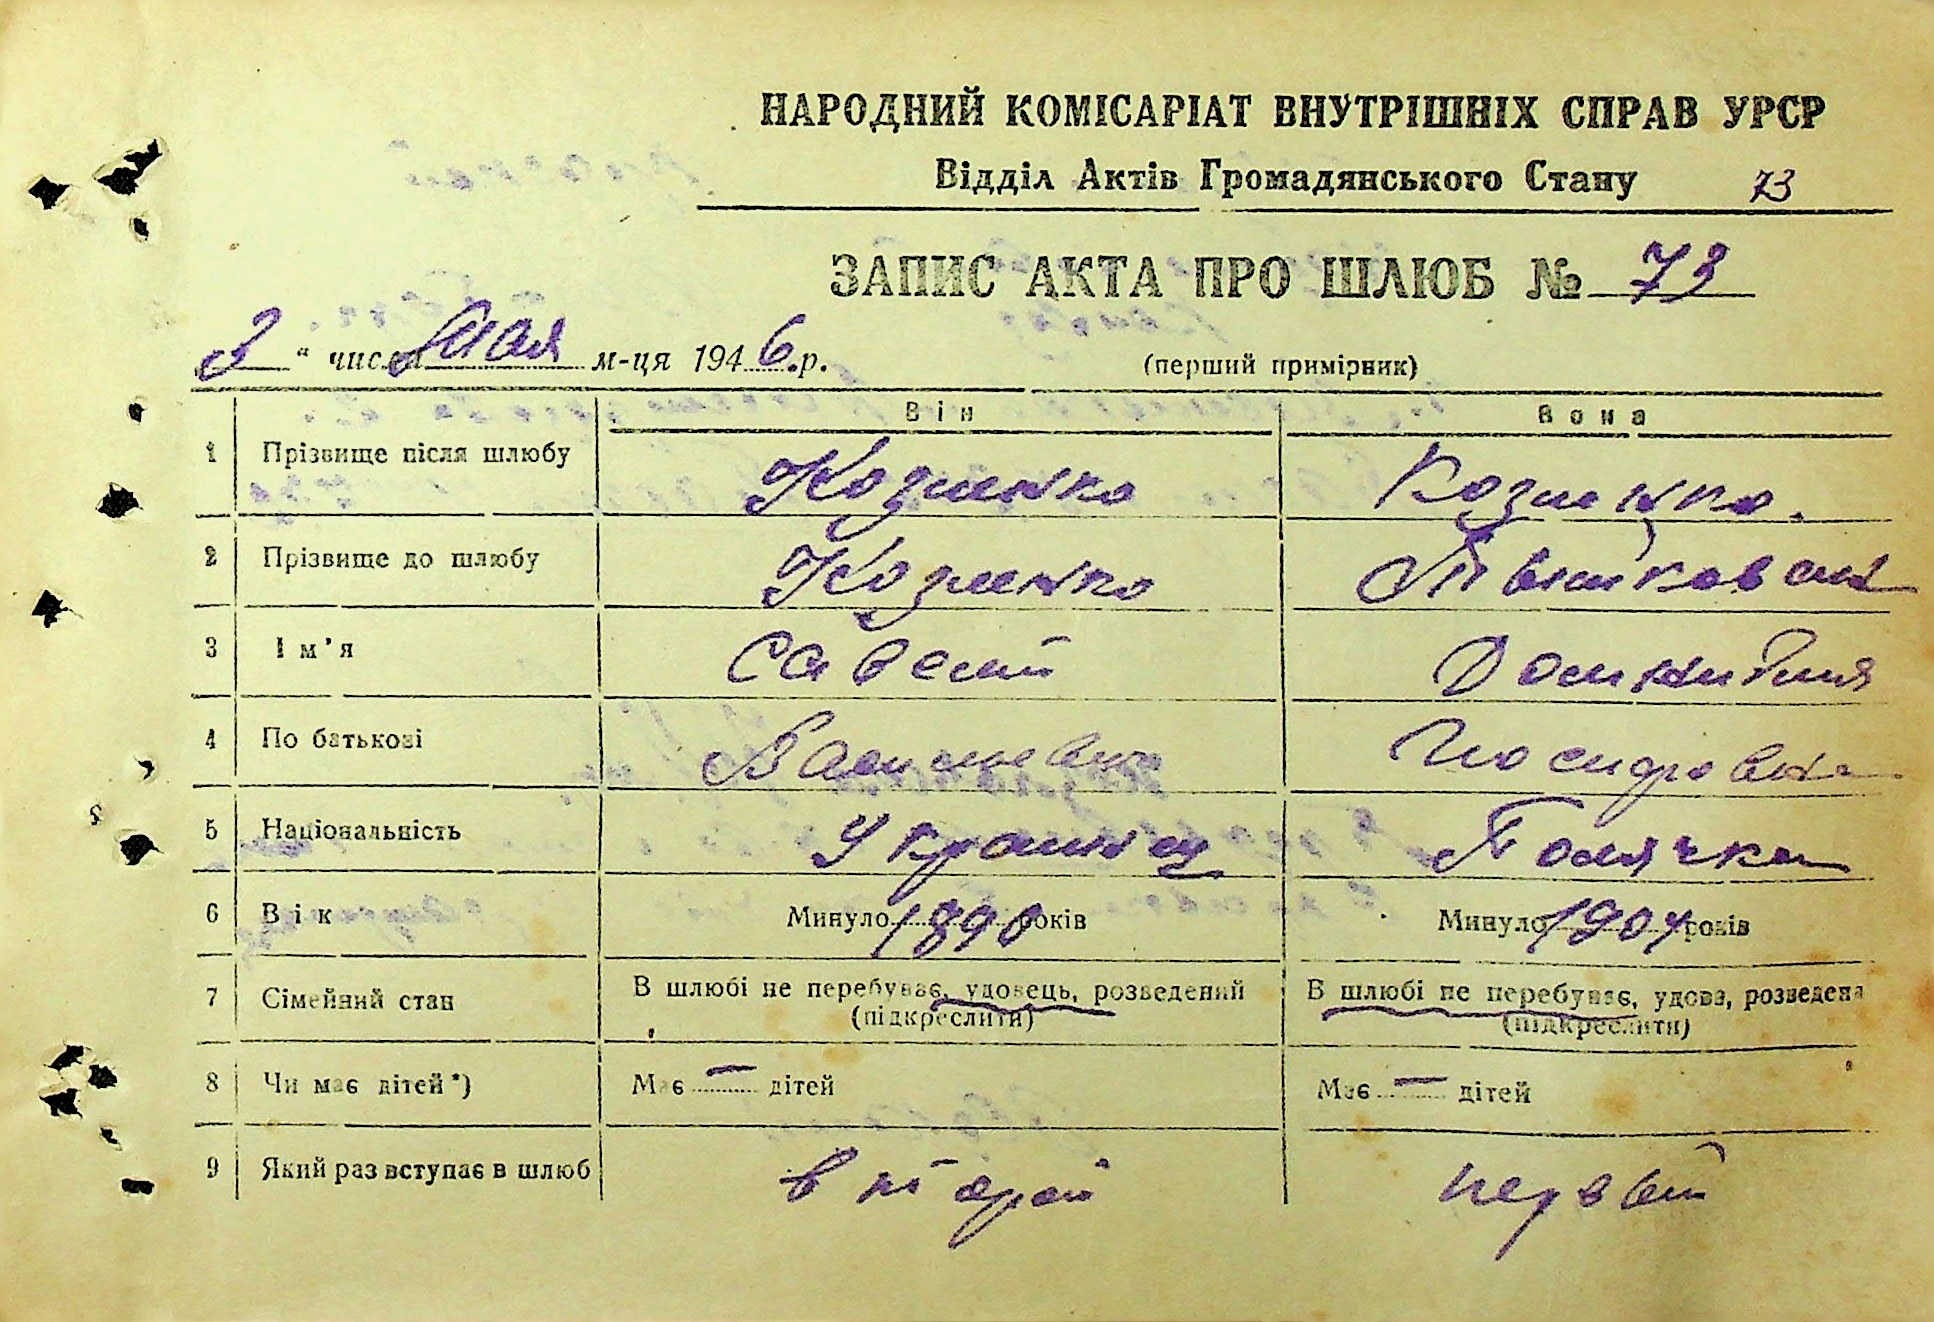 НАРОДНИЙ КОМІСАРІАТ ВНУТРІШНІХ СПРАВ УРСР
Відділ Актів Громадянського Стану 73
ЗАПИС АКТА ПРО ШЛЮБ № 73
3 " числа Мая м-ця 1946.р. (перший примірник)
Він Вона
1 Прізвище після шлюбу Козленко
2 Прізвище до шлюбу Козленко
3 Ім'я Савелий
4 По батькові Васильевич Иосифовна
5 Національність Украинец Полячка
6 Вік Минуло 1890 років Минуло 1904 років
7 Сімейний стан В шлюбі не перебуває, удовець, розведений В шлюбі не перебуває, удова, розведена
(підкреслити) (підкреслити)
8 Чи має дітей*) Має — дітей Має — дітей
9 Який раз вступає в шлюб второй первый